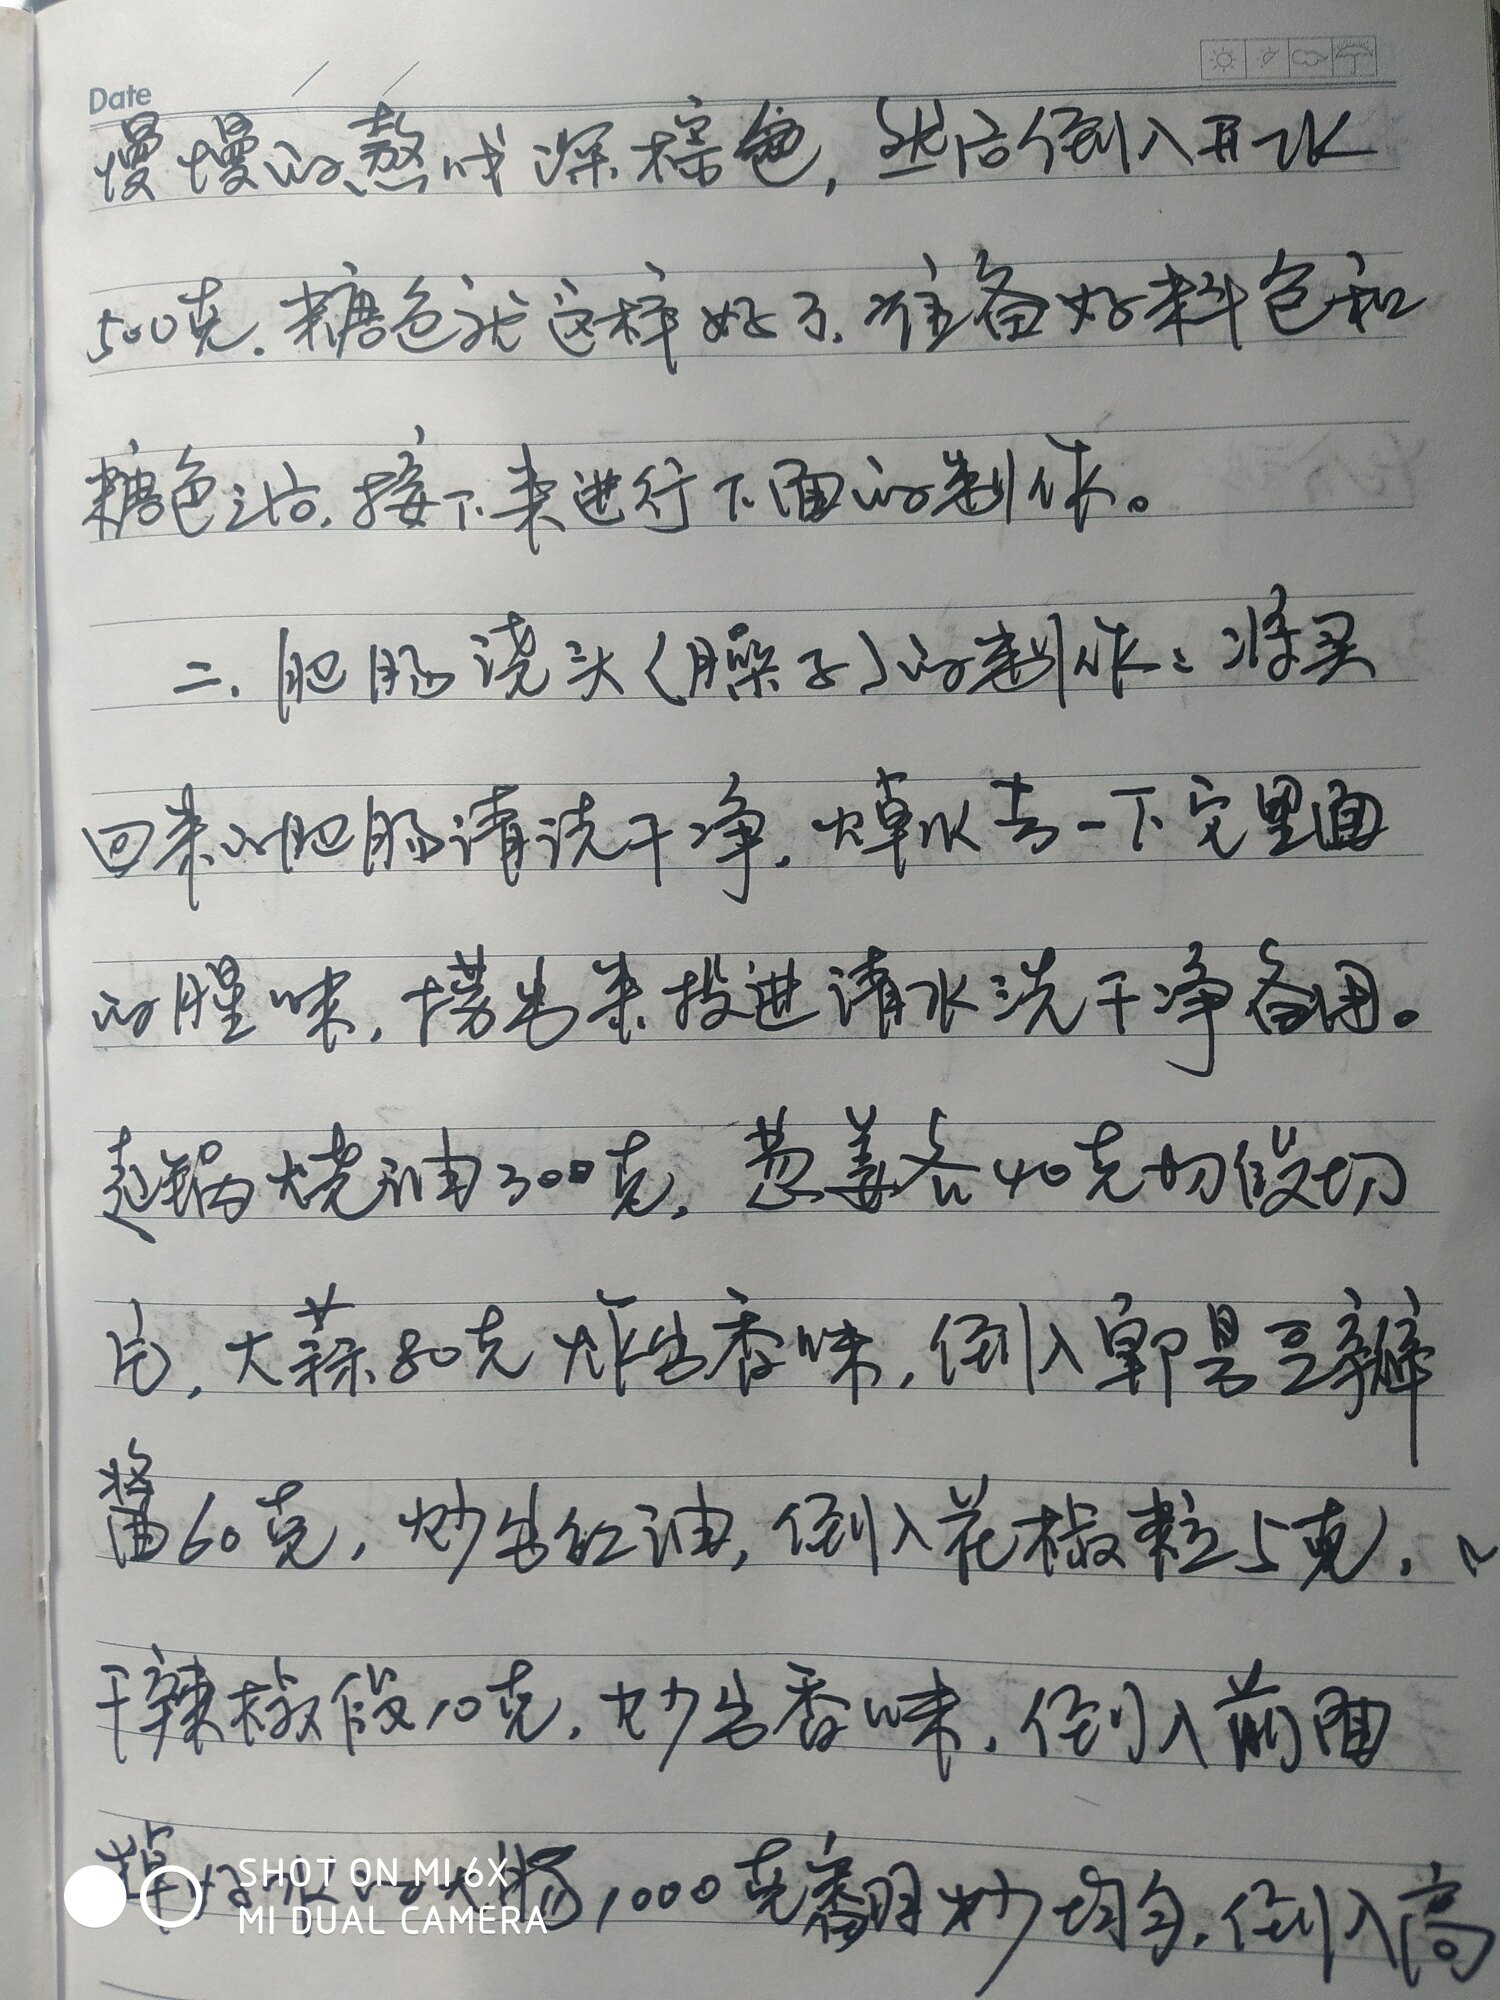 Date
慢慢的熬成深棕色，然后倒入开水
500克.糖色就这样好了.准备好料包和
糖色之后,接下来进行下面的制作。
二.肥肠浇头(臊子)的制作:将买
回来的肥肠清洗干净.焯水去一下它里面
的腥味,捞出来投进清水洗干净备用。
起锅烧油300克.葱姜各40克切段切
片,大蒜80克炸出香味,倒入郫县豆瓣
酱60克,炒出红油,倒入花椒粒5克.
干辣椒段10克.炒出香味.倒入前面
焯好水的大肠1000克翻炒均匀.倒入高
SHOT ON MI 6X
MI DUAL CAMERA